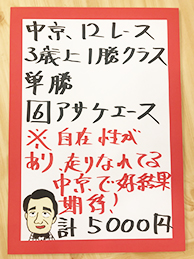 中京、12レース
3歳上1勝クラス
単勝
6 アサケエース
※自在性が
あり、走りなれてる
中京で好結果
期待！
計5000円